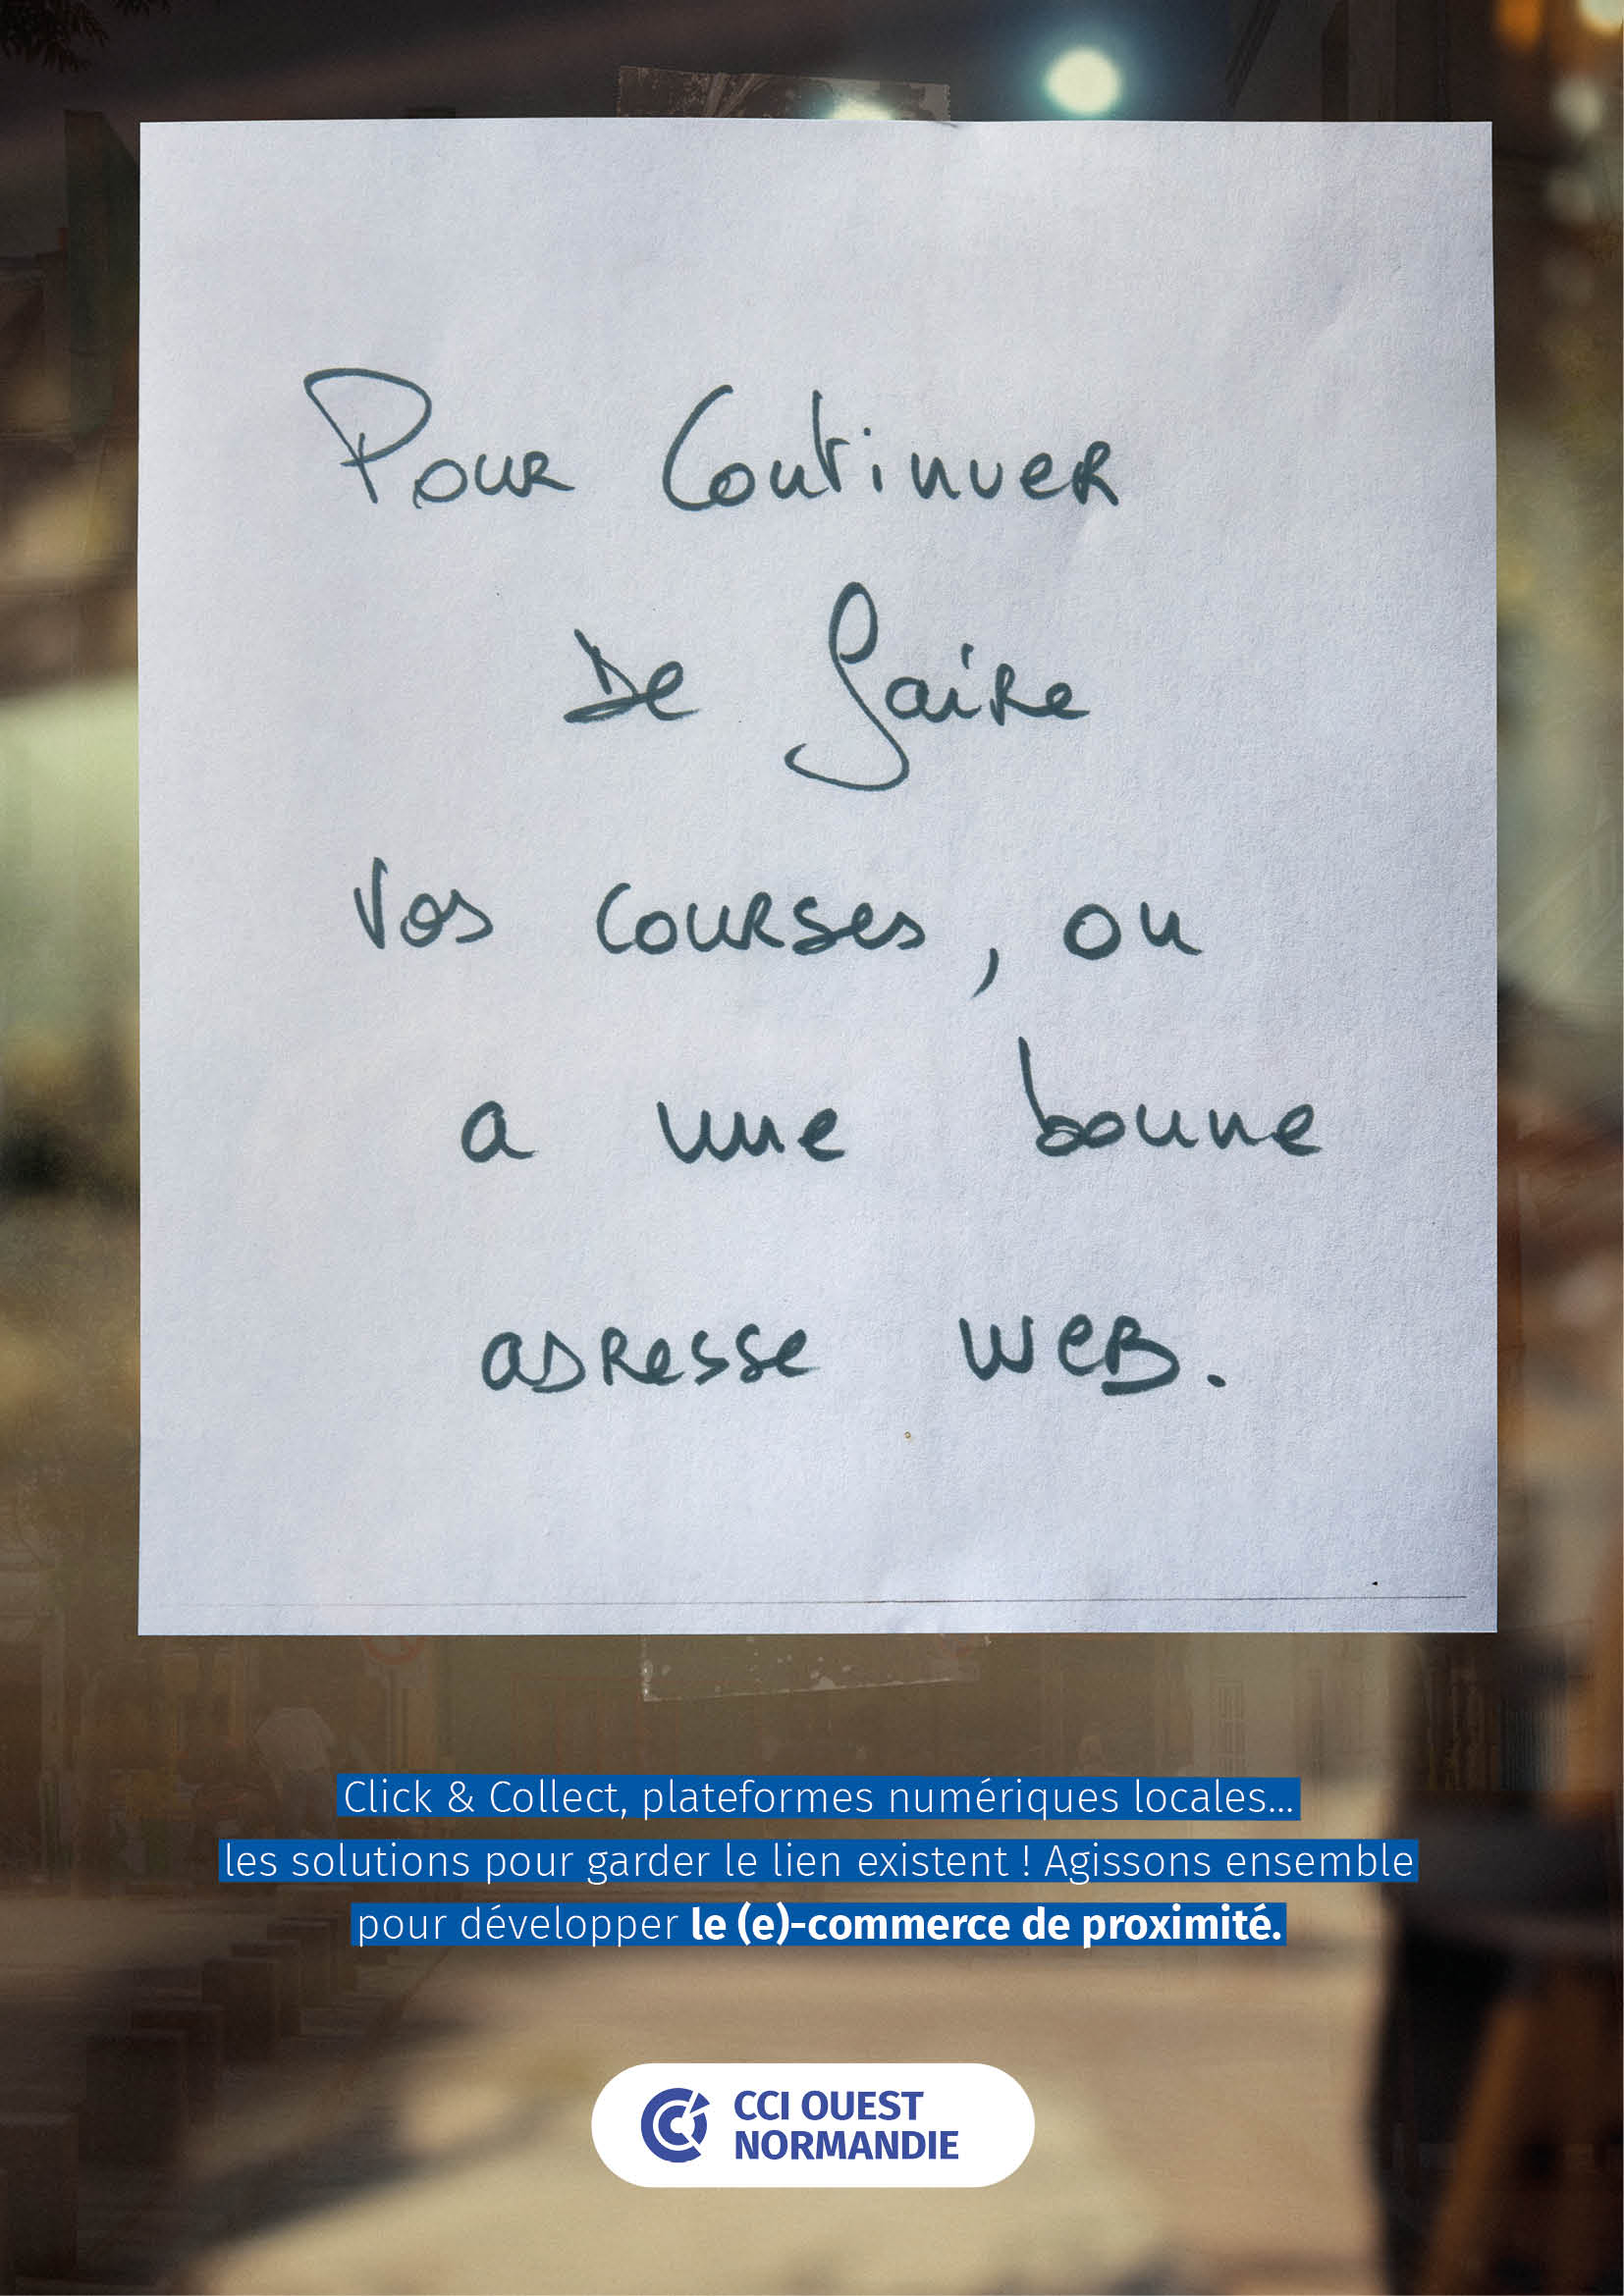 Pour Continuer
De faire
Vos courses, on
a une bonne
adresse web.
Click & Collect, plateformes numériques locales...
les solutions pour garder le lien existent ! Agissons ensemble
pour développer le (e)-commerce de proximité.
CCI OUEST
NORMANDIE